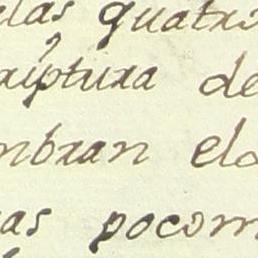 elas quatro
criptura de
mbran elo
as pocom